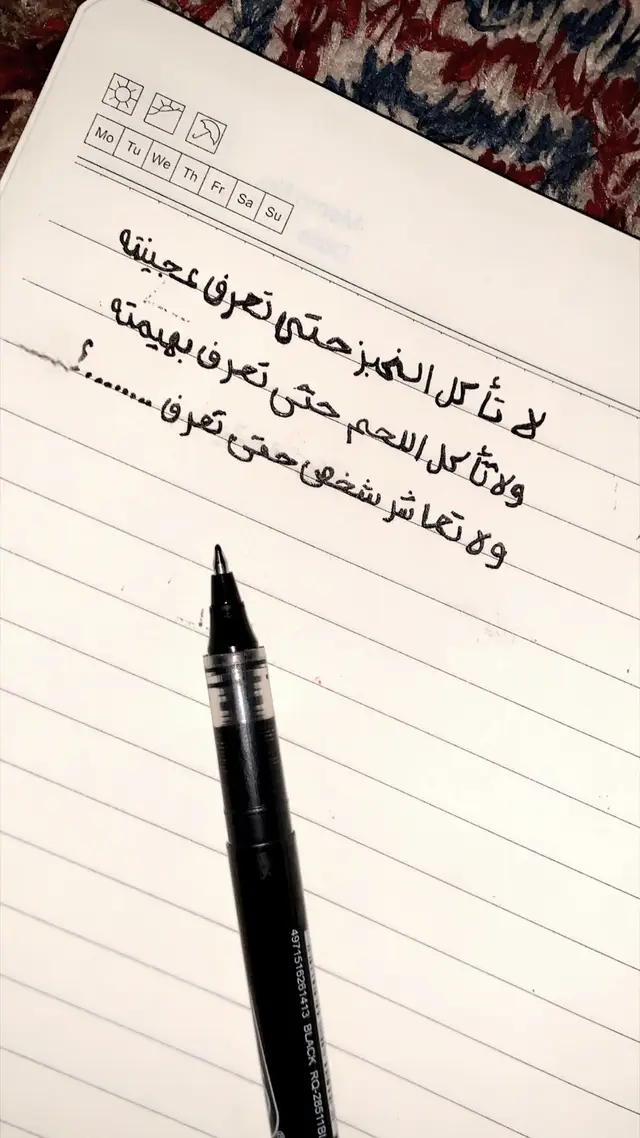 Mo Tu We Th Fr Sa Su
لا تأكل الخبز حتى تعرف عجينته
ولا تأكل اللحم حتى تعرف بهيمته
ولا تعاشر شخص حتى تعرف ........؟
4971516261413 BLACK RQ-28511B